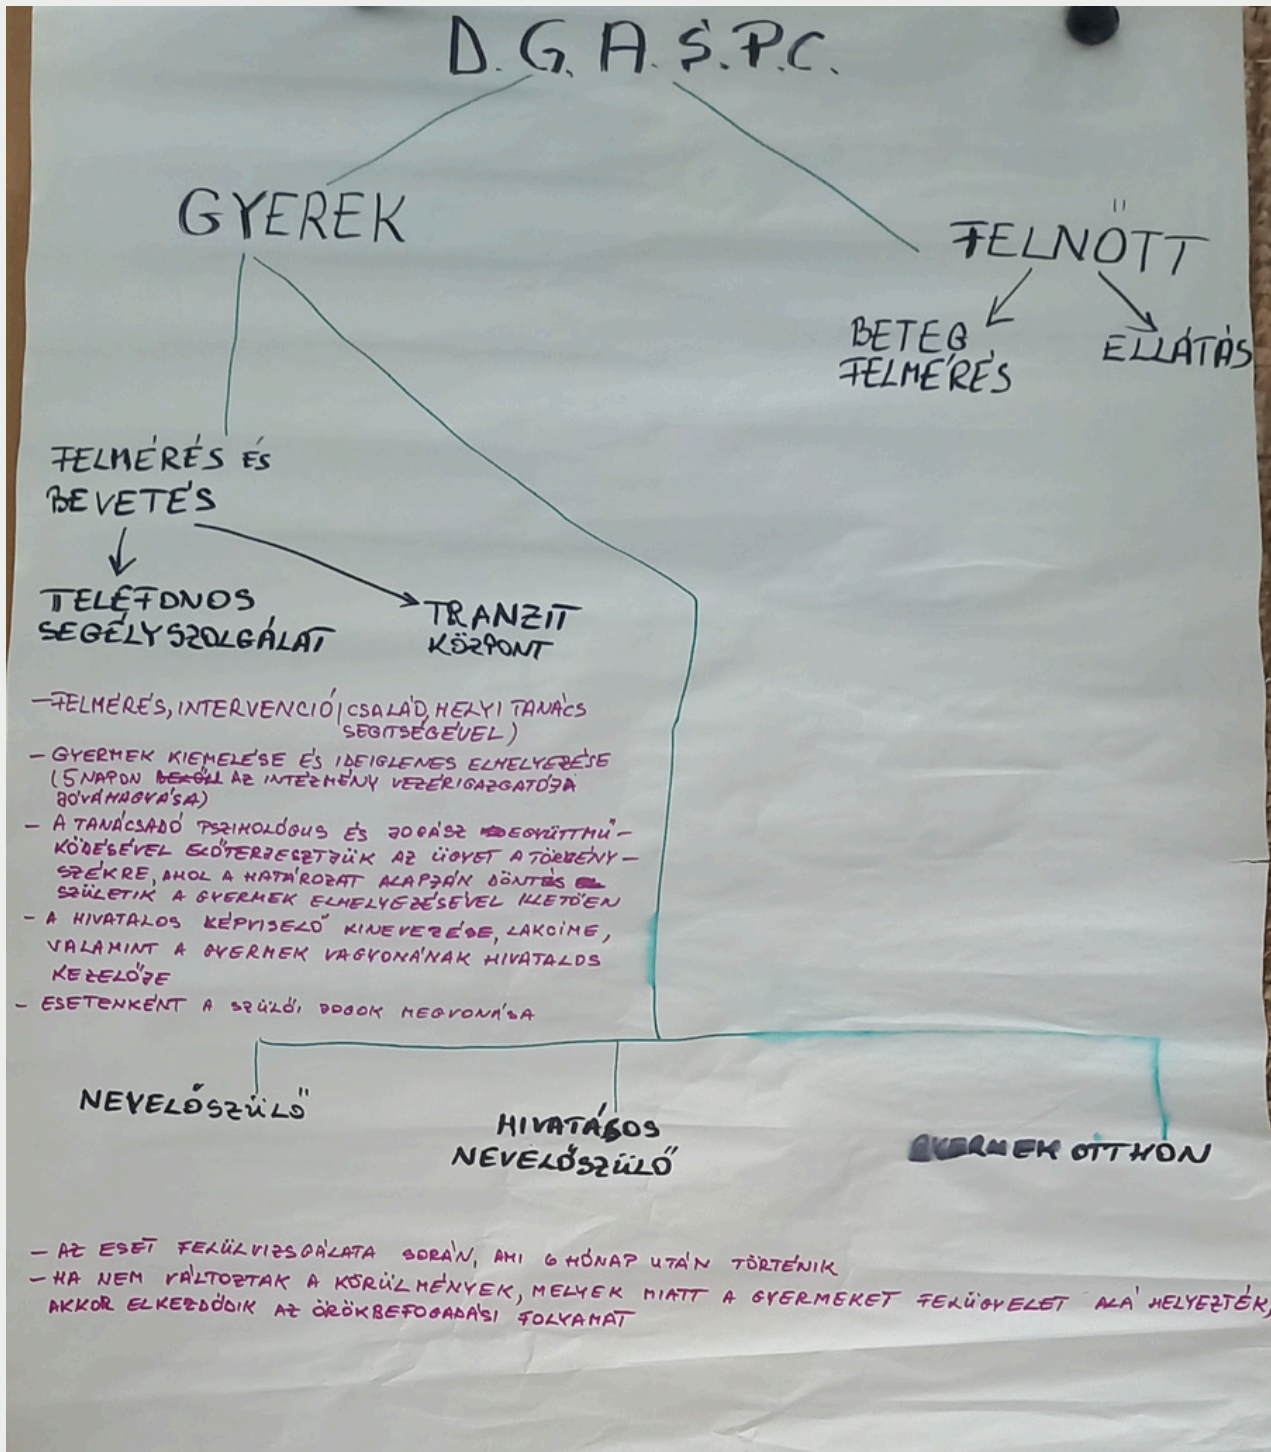 D.G.A.S.P.C.
GYEREK
FELNŐTT
BETEG
FELMÉRÉS
ELLÁTÁS
FELMÉRÉS ÉS
BEVETÉS
TELEFONOS
SEGÉLYSZOLGÁLAT
TRANZIT
KÖZPONT
- FELMÉRÉS, INTERVENCIÓ (CSALÁD, HELYI TANÁCS
SEGITSÉGÉVEL)
- GYERMEK KIEMELÉSE ÉS IDEIGLENES ELHELYEZÉSE
(5 NAPON AZ INTÉZMÉNY VEZÉRIGAZGATÓJA
JÓVÁHAGYÁSA)
- A TANÁCSADÓ PSZIHOLÓGUS ÉS JOGÁSZ EGYÜTTMŰ-
KÖDÉSÉVEL ELŐTERJESZTJÜK AZ ÜGYET A TÖRVÉNY-
SZÉKRE, AHOL A HATÁROZAT ALAPJÁN DÖNTÉS
SZÜLETIK A GYERMEK ELHELYEZÉSÉVEL ILLETŐEN
- A HIVATALOS KÉPVISELŐ KINEVEZÉSE, LAKCIME,
VALAMINT A GYERMEK VAGYONÁNAK HIVATALOS
KEZELŐJE
- ESETENKÉNT A SZÜLŐI JOGOK MEGVONÁSA
NEVELŐSZÜLŐ
HIVATÁSOS
NEVELŐSZÜLŐ
GYERMEK OTTHON
- AZ ESET FELÜLVIZSGÁLATA SORÁN, AMI 6 HÓNAP UTÁN TÖRTÉNIK
- HA NEM VÁLTOZTAK A KÖRÜLMÉNYEK, MELYEK MIATT A GYERMEKET FELÜGYELET ALÁ HELYEZTÉK,
AKKOR ELKEZDŐDIK AZ ÖRÖKBEFOGADÁSI FOLYAMAT